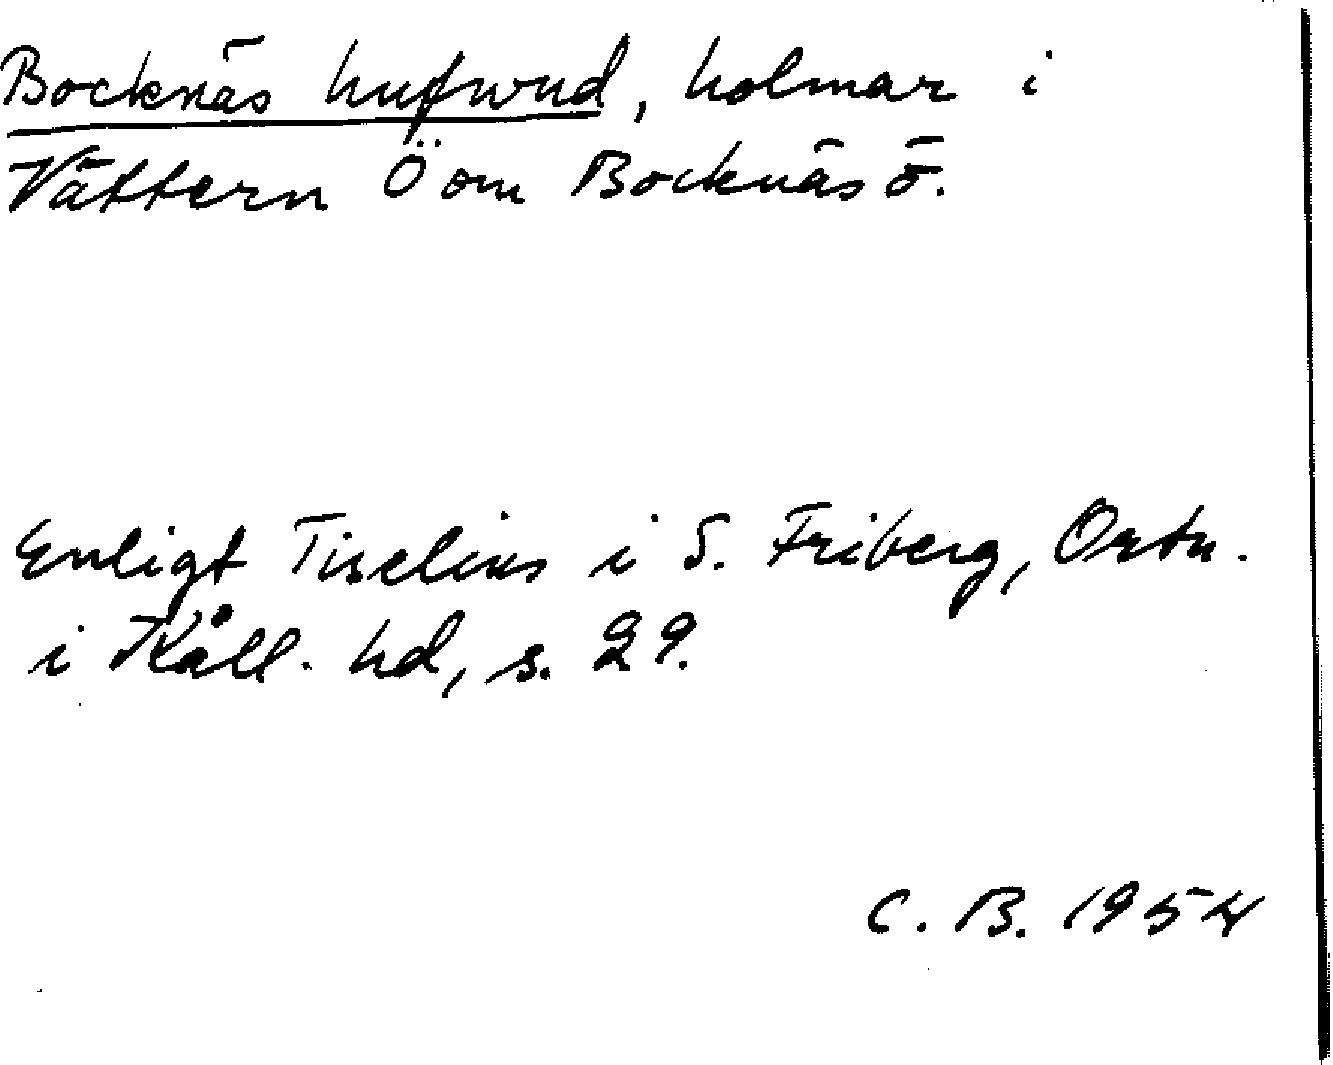 Bocknäs hufwud, holmar i
Vättern Ö om Bocknäs ö.
Enligt Tiselius i S. Friberg, Ortn.
i Kåll. hd, s. 29.
C. B. 1954